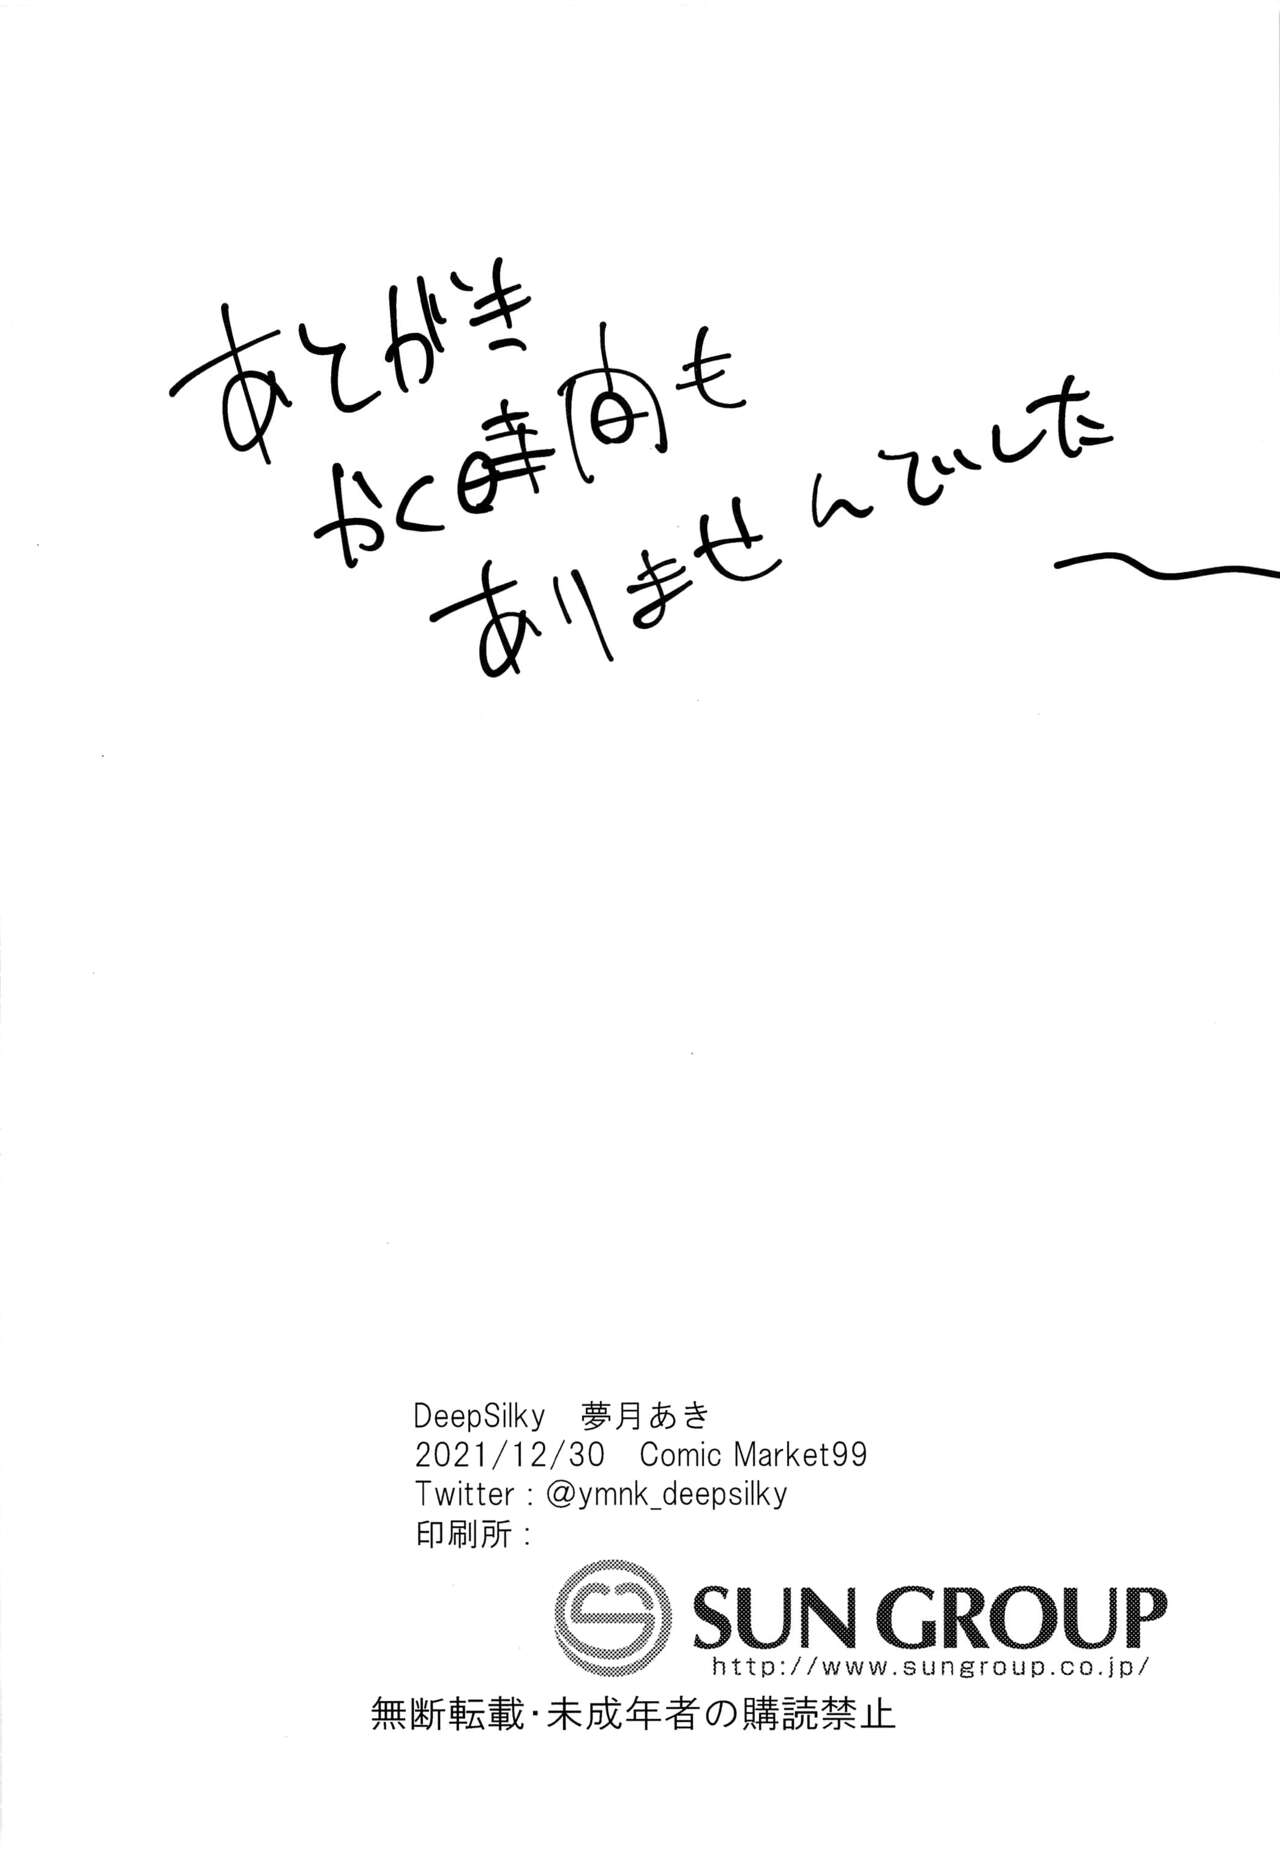 あとがき
かく時間も
ありませんでした
DeepSilky　夢月あき
2021/12/30　Comic Market99
Twitter : @ymnk_deepsilky
印刷所 :
SUN GROUP
http://www.sungroup.co.jp/
無断転載・未成年者の購読禁止